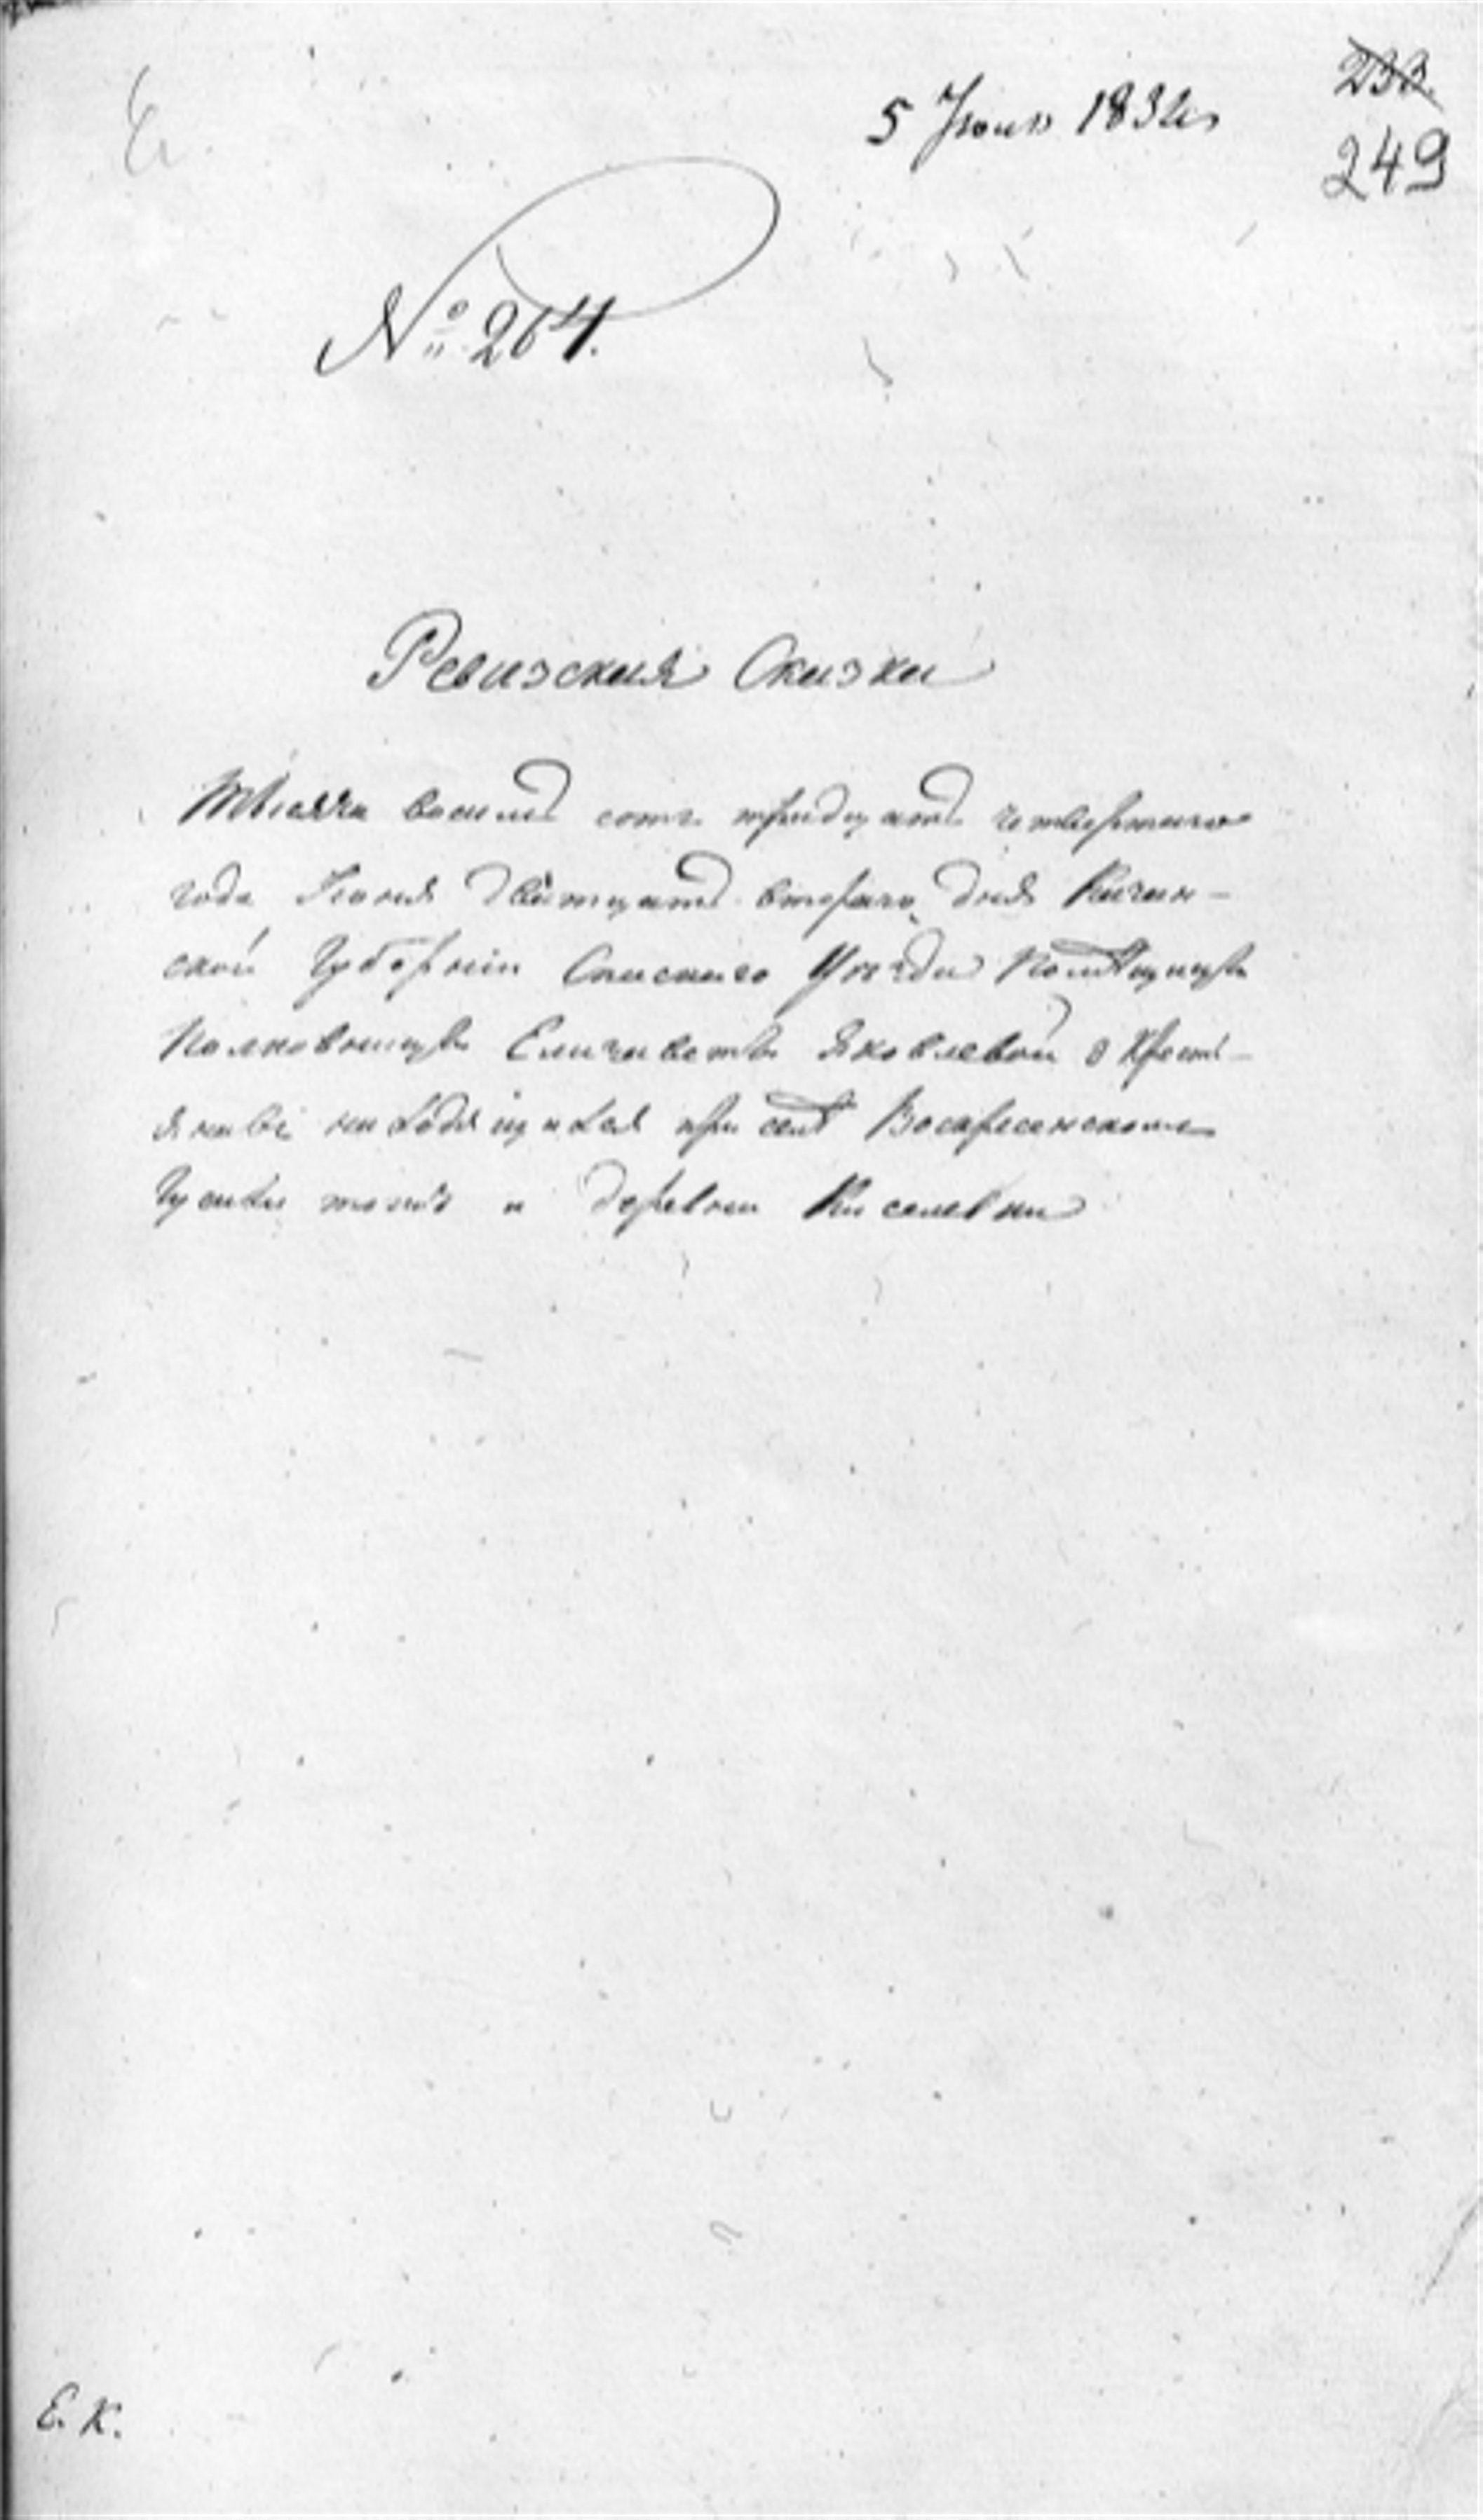 5 Июня 1834
233.
249
№ 264.
Ревизския Сказки
Тысяча восемь сотъ тридцать четвертаго
года Июня дватцать втораго дня Казан-
ской Губернiи Спаскаго Уезда Помѣщицы
Полковницы Елизаветы Яковлевой о Кресть-
янахъ находящихся при селѣ Воскресенскомъ
тожъ и деревни Киселевки
Е. К.